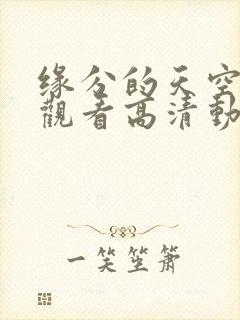 缘分的天空
觀看高清動
一笑笙箫